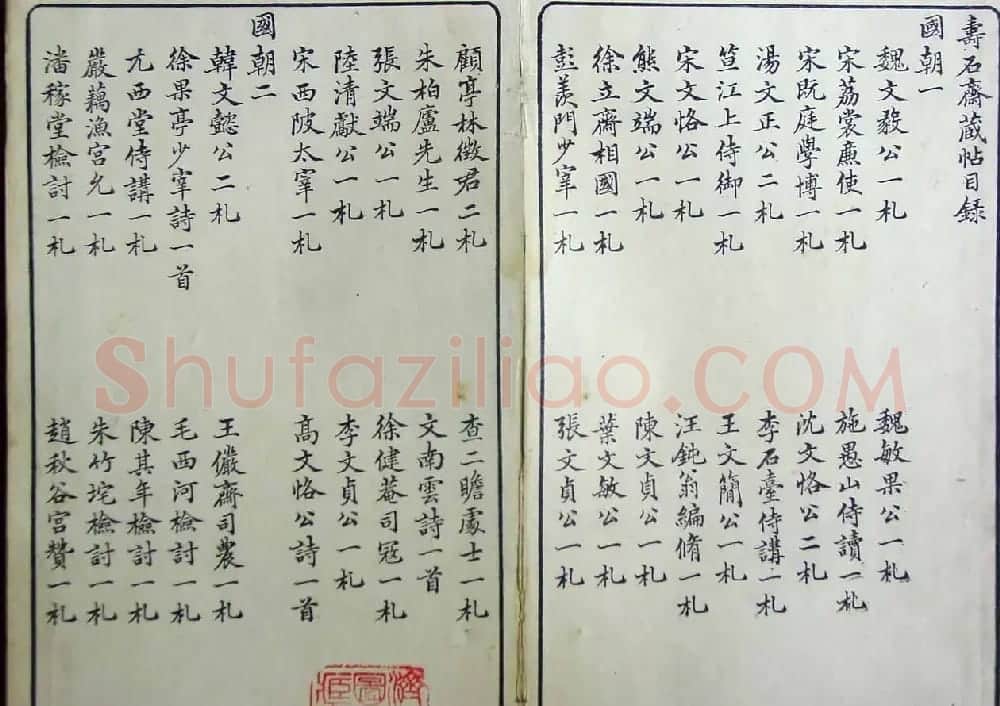 壽石齋藏帖目錄
國朝一
魏文毅公一札
魏敏果公一札
宋荔裳廉使一札
施愚山侍讀一札
宋既庭學博一札
沈文恪公二札
湯文正公二札
李石臺侍講一札
笪江上侍御一札
王文簡公一札
宋文恪公一札
汪鈍翁編脩一札
熊文端公一札
陳文貞公一札
徐立齋相國一札
葉文敏公一札
彭羨門少宰一札
張文貞公一札
顧亭林徵君二札
查二瞻處士一札
朱柏廬先生一札
文南雲詩一首
張文端公一札
徐健菴司寇一札
陸清獻公一札
李文貞公一札
宋西陂太宰一札
高文恪公詩一首
國朝二
韓文懿公二札
王儼齋司農一札
徐果亭少宰詩一首
毛西河檢討一札
尤西堂侍講一札
陳其年檢討一札
嚴藕漁宮允一札
朱竹垞檢討一札
潘稼堂檢討一札
趙秋谷宮贊一札
Shufaziliao.COM